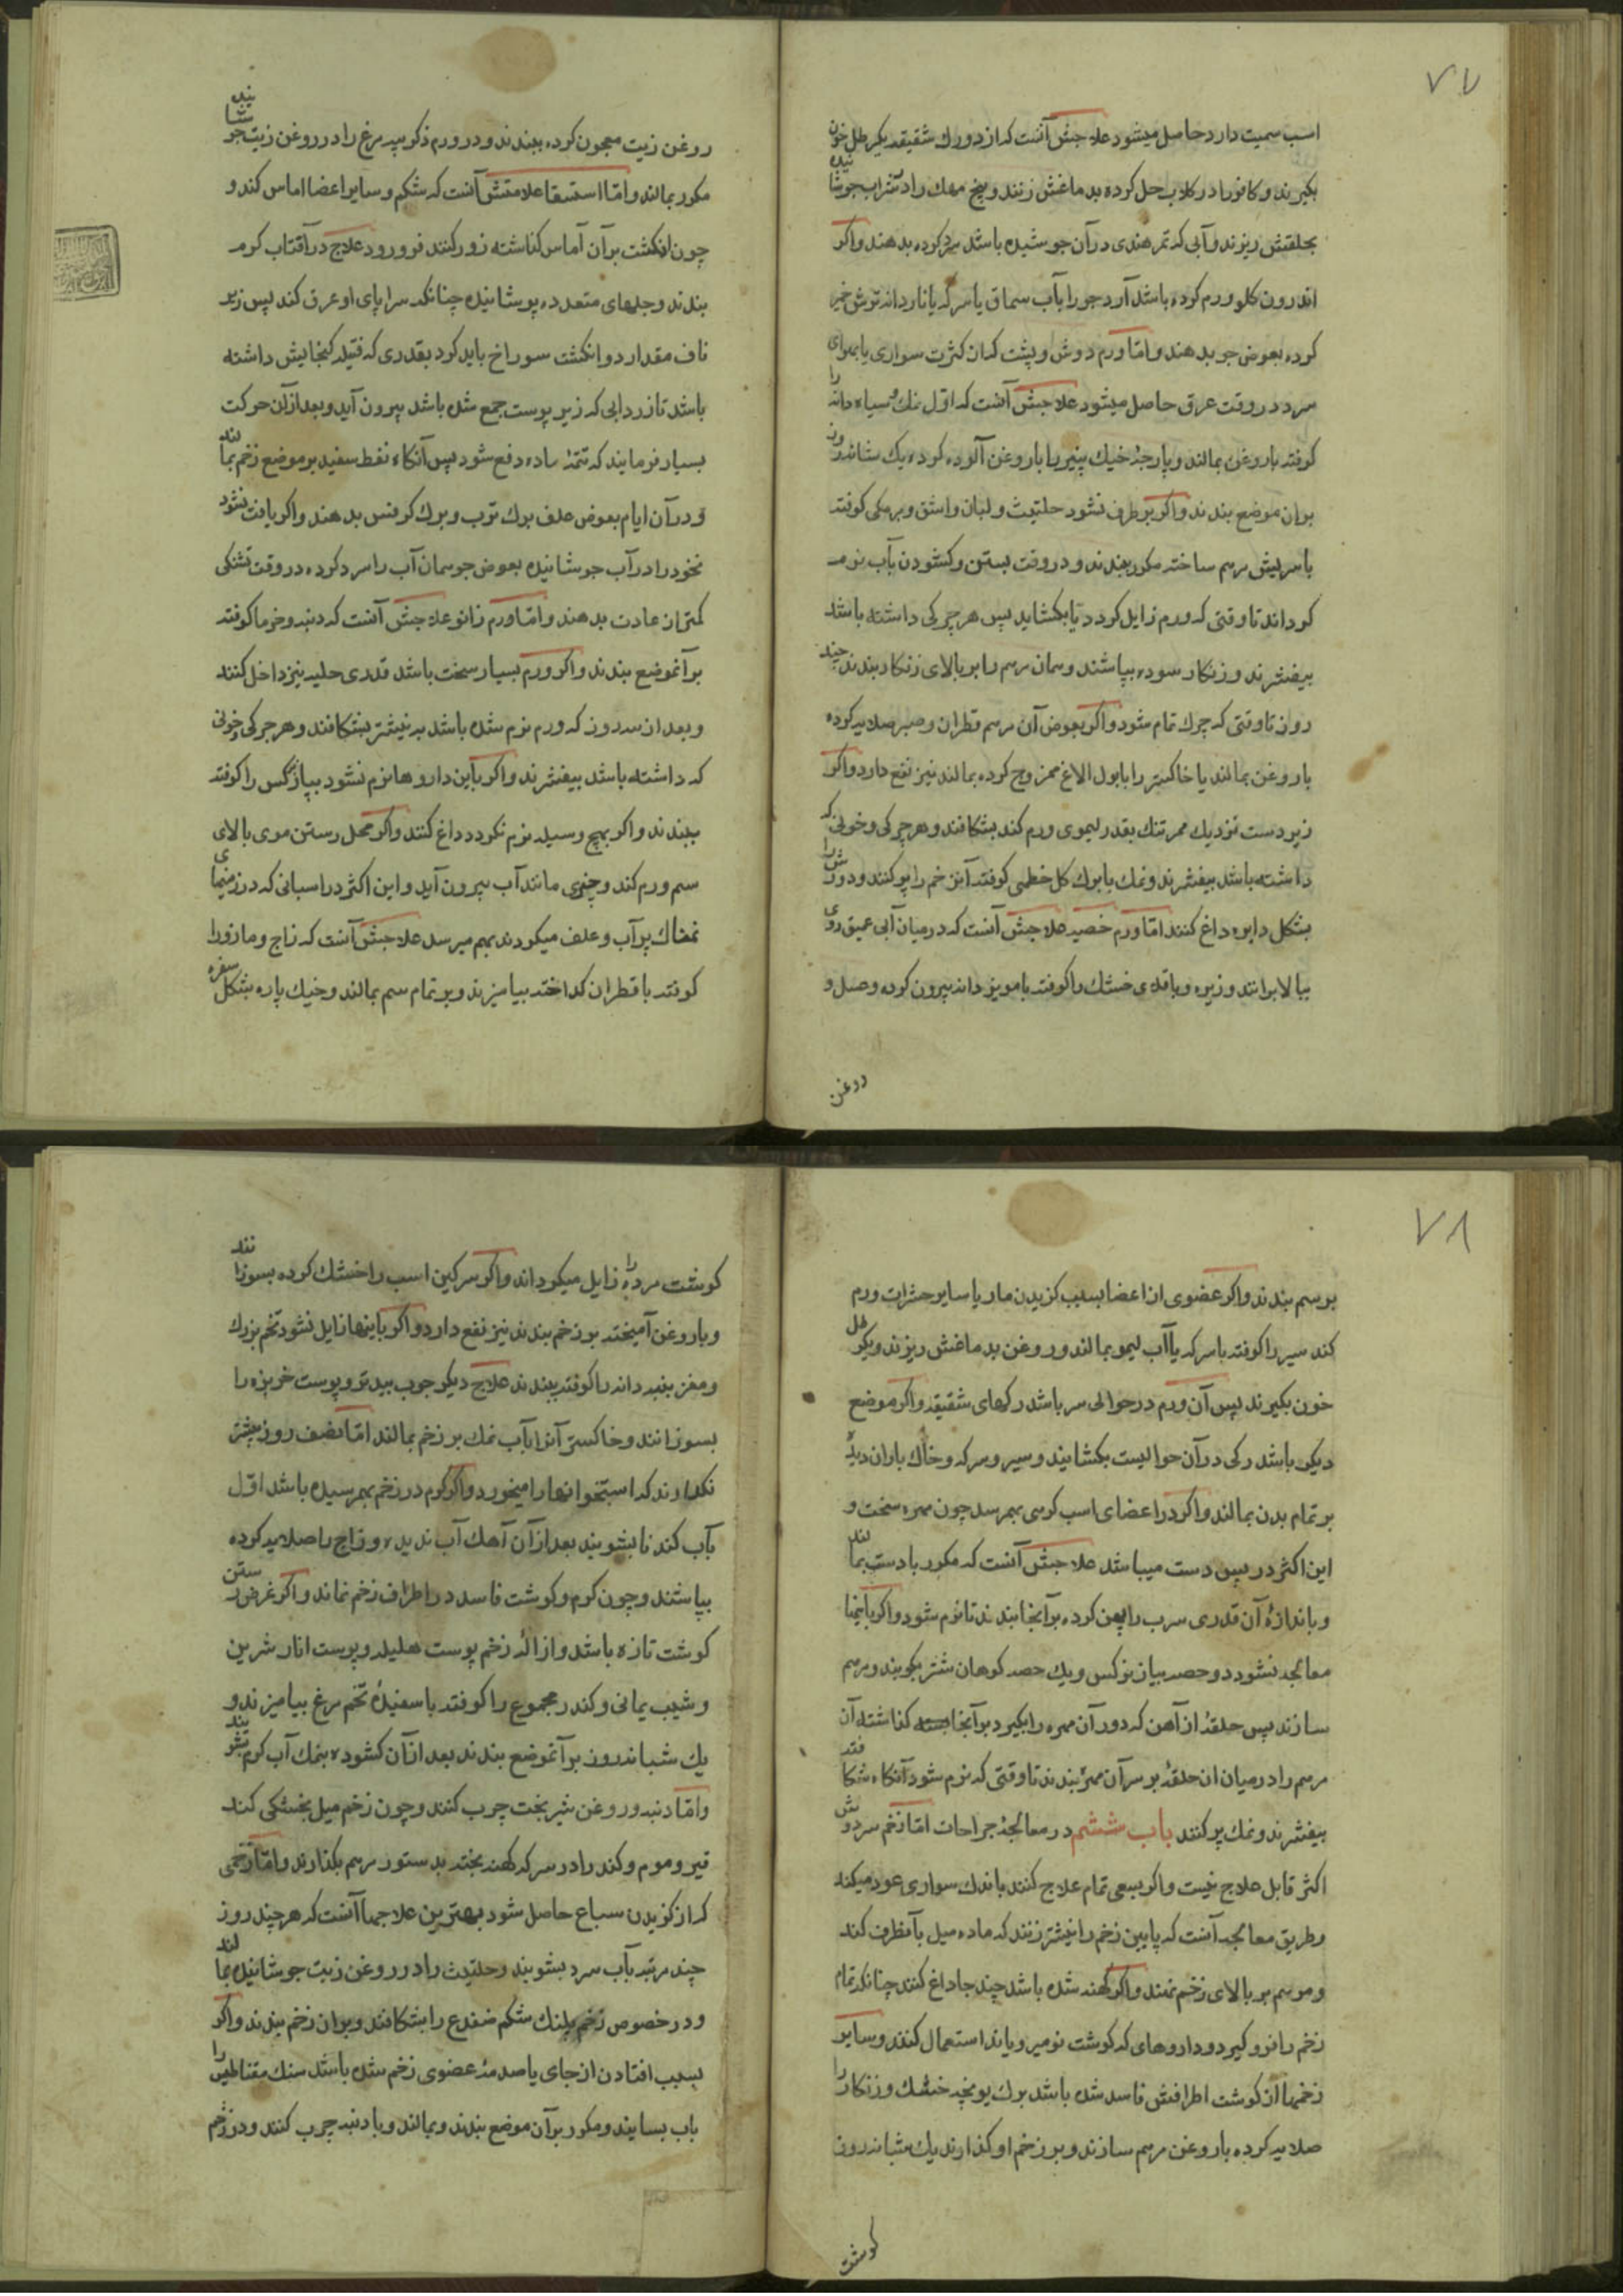 ٧٧
اسب سمیت دارد حاصل میشود علاجش آنست که از دو رک شقیقه یکرطل خون
بکیرند و کافور را در کلاب حل کرده بدماغش زنند و بیخ مهک را در شراب جوشانیده
بحلقش ریزند و آبی که تمر هندی در آن جوشیده باشد سرد کرده بدهند و اکر
اندرون کلو ورم کرده باشد آرد جو را بآب سماق یا سرکه یا ناردانه ترش خمیر
کرده بعوض جو بدهند و امّا ورم دوش و پشت که از کثرت سواری یا بهوای
سرد در وقت عرق حاصل میشود علاجش آنست که اوّل نمک و سیاه دانه را
کوفته با روغن بمالند و پارچهٔ خیک پنیر را با روغن آلوده کرده یک شبانه روز
بران موضع بندند و اکر برطرف نشود حلتیت و لبان و اشق و برمکی کوفته
با سریش مرهم ساخته مکرر ببندند و در وقت بستن و کشودن بآب نرم
کرداند تا وقتی که ورم زایل کردد یا بکشاید پس هر چرکی داشته باشد
بیفشرند و زنکار سوده بپاشند و همان مرهم را بر بالای زنکار بندند چند
روز تا وقتی که چرک تمام شود و اکر بعوض آن مرهم قطران و صبر صلایه کرده
با روغن بمالند یا خاکستر را با بول الاغ ممزوج کرده بمالند نیز نفع دارد و اکر
زیر دست نزدیک ممر تنک بقدر لیموی ورم کند بشکافند و هر چرکی و خونی که
داشته باشد بیفشرند و نمک با برک کل خطمی کوفته آن زخم را پر کنند و دورش را
بشکل دایره داغ کنند امّا ورم خصیه علاجش آنست که در میان آبی عمیق روی
ببالا برانند و زیره و باقلای خشک را کوفته با مویز دانه بیرون کرده و عسل و
روغن
روغن زیت معجون کرده ببندند و در ورم ذکر پیه مرغ را در روغن زیت جوشانیده
مکرر بمالند و امّا استسقا علامتش آنست که شکم و سایر اعضا اماس کند و
چون انکشت بر آن آماس کذاشته زور کنند فرو رود علاج در آفتاب کرم
بندند و جلهای متعدده پوشانیده چنانکه سراپای او عرق کند پس زیر
ناف مقدار دو انکشت سوراخ باید کرد بقدری که فتیله کنجایش داشته
باشد تا زردابی که زیر پوست جمع شده باشد بیرون آید و بعد از آن حرکت
بسیار فرمایند که تتمهٔ ماده دفع شود پس آنکاه نفط سفید بر موضع زخم بمالند
و در آن ایام بعوض علف برک ترب و برک کرفس بدهند و اکر یافت نشود
نخود را در آب جوشانیده بعوض جو همان آب را سرد کرده در وقت تشنکی
کمتر از عادت بدهند و امّا ورم زانو علاجش آنست که دنبه و خرما کوفته
بر آنموضع بندند و اکر ورم بسیار سخت باشد قدری حلبه نیز داخل کنند
و بعد از سه روز که ورم نرم شده باشد به نیشتر بشکافند و هر چرکی و خونی
که داشته باشد بیفشرند و اکر باین داروها نرم نشود پیاز نرکس را کوفته
ببندند و اکر بهیچ وسیله نرم نکردد داغ کنند و اکر محل رستن موی بالای
سم ورم کند و چیزی مانند آب بیرون آید و این اکثر در اسبانی که در زمینهای
نمناک پر آب و علف میکردند بهم میرسد علاجش آنست که زاج و مازو را
کوفته با قطران کداخته بیامیزند و بر تمام سم بمالند و خیک پاره بشکل سفره
٧٨
بر سم بندند و اکر عضوی از اعضا بسبب کزیدن مار یا سایر حشرات ورم
کند سیر را کوفته با سرکه یا آب لیمو بمالند و روغن بدماغش ریزند و یکرطل
خون بکیرند پس آن ورم در حوالی سر باشد رکهای شقیقه و اکر موضع
دیکر باشد رکی در آن حوالیست بکشایند و سیر و سرکه و خاک باران دیده
بر تمام بدن بمالند و اکر در اعضای اسب کرهی بهمرسد چون مهره سخت و
این اکثر در پس دست میباشد علاجش آنست که مکرر با دست بمالند
و باندازهٔ آن قدری سرب را پهن کرده بر آنجا بندند تا نرم شود و اکر باینها
معالجه نشود دو حصه پیاز نرکس و یک حصه کوهان شتر بکوبند و مرهم
سازند پس حلقهٔ از آهن که دور آن مهره را بکیرد بر آنجا بسته کذاشته آن
مرهم را در میان ان حلقهٔ بر سر آن مهره بندند تا وقتی که نرم شود آنکاه شکافته
بیفشرند و نمک پر کنند باب ششم در معالجهٔ جراحات امّا زخم سر دوش
اکثر قابل علاج نیست و اکر بسعی تمام علاج کنند باندک سواری عود میکند
و طریق معالجه آنست که پایین زخم را نیشتر زنند که ماده میل بآنطرف کند
و مرهم بر بالای زخم نهند و اکر کهنه شده باشد چند جا داغ کنند چنانکه تمام
زخم را فرو کیرد و داروهای که کوشت نو میرویاند استعمال کنند و سایر
زخمها از کوشت اطرافش فاسد شده باشد برک یونجه خشک و زنکار را
صلایه کرده با روغن مرهم سازند و بر زخم او کذارند یک شبانه روز
کوشت
کوشت مرده را زایل میکرداند و اکر سرکین اسب را خشک کرده بسوزانند
و با روغن آمیخته بر زخم بندند نیز نفع دارد و اکر باینها زایل نشود تخم بزرک
و مغز پنبه دانه را کوفته ببندند علاج دیکر چوب بید تر و پوست خربزه را
بسوزانند و خاکستر آنرا بآب نمک بر زخم بمالند امّا نصف روز بیشتر
نکذارند که استخوانها را میخورد و اکر کرم در زخم بهمرسیده باشد اوّل
بآب کندنا بشویند بعد از آن آهک آب ندیده و زاج را صلایه کرده
بپاشند و چون کرم و کوشت فاسد در اطراف زخم نماند و اکر غرض رستن
کوشت تازه باشد و ازالهٔ زخم پوست هلیله و پوست انار شیرین
و شیب یمانی و کندر مجموع را کوفته با سفیدهٔ تخم مرغ بیامیزند و
یک شبانه روز بر آنموضع بندند بعد از آن کشوده بنمک آب کرم بشویند
و امّا دنبه و روغن شیر بخت چرب کنند و چون زخم میل بخشکی کند
قیر و موم و کندر را در سرکه کهنه پخته بدستور مرهم بکذارند و امّا زخمی
که از کزیدن سباع حاصل شود بهترین علاجها آنست که هر چند روز
چند مرتبه بآب سرد بشویند و حلتیت را در روغن زیت جوشانیده بمالند
و در خصوص زخم پلنک شکم ضفدع را بشکافند و بران زخم بندند و اکر
بسبب افتادن از جای یا صدمهٔ عضوی زخم شده باشد سنک مقناطیس را
باب بسایند و مکرر بر آن موضع بندند و بمالند و با دنبه چرب کنند و در زخم